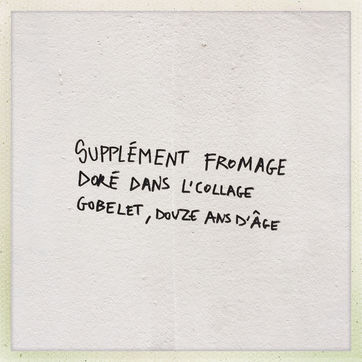 SUPPLÉMENT FROMAGE
DORÉ DANS L'COLLAGE
GOBELET, DOUZE ANS D'ÂGE